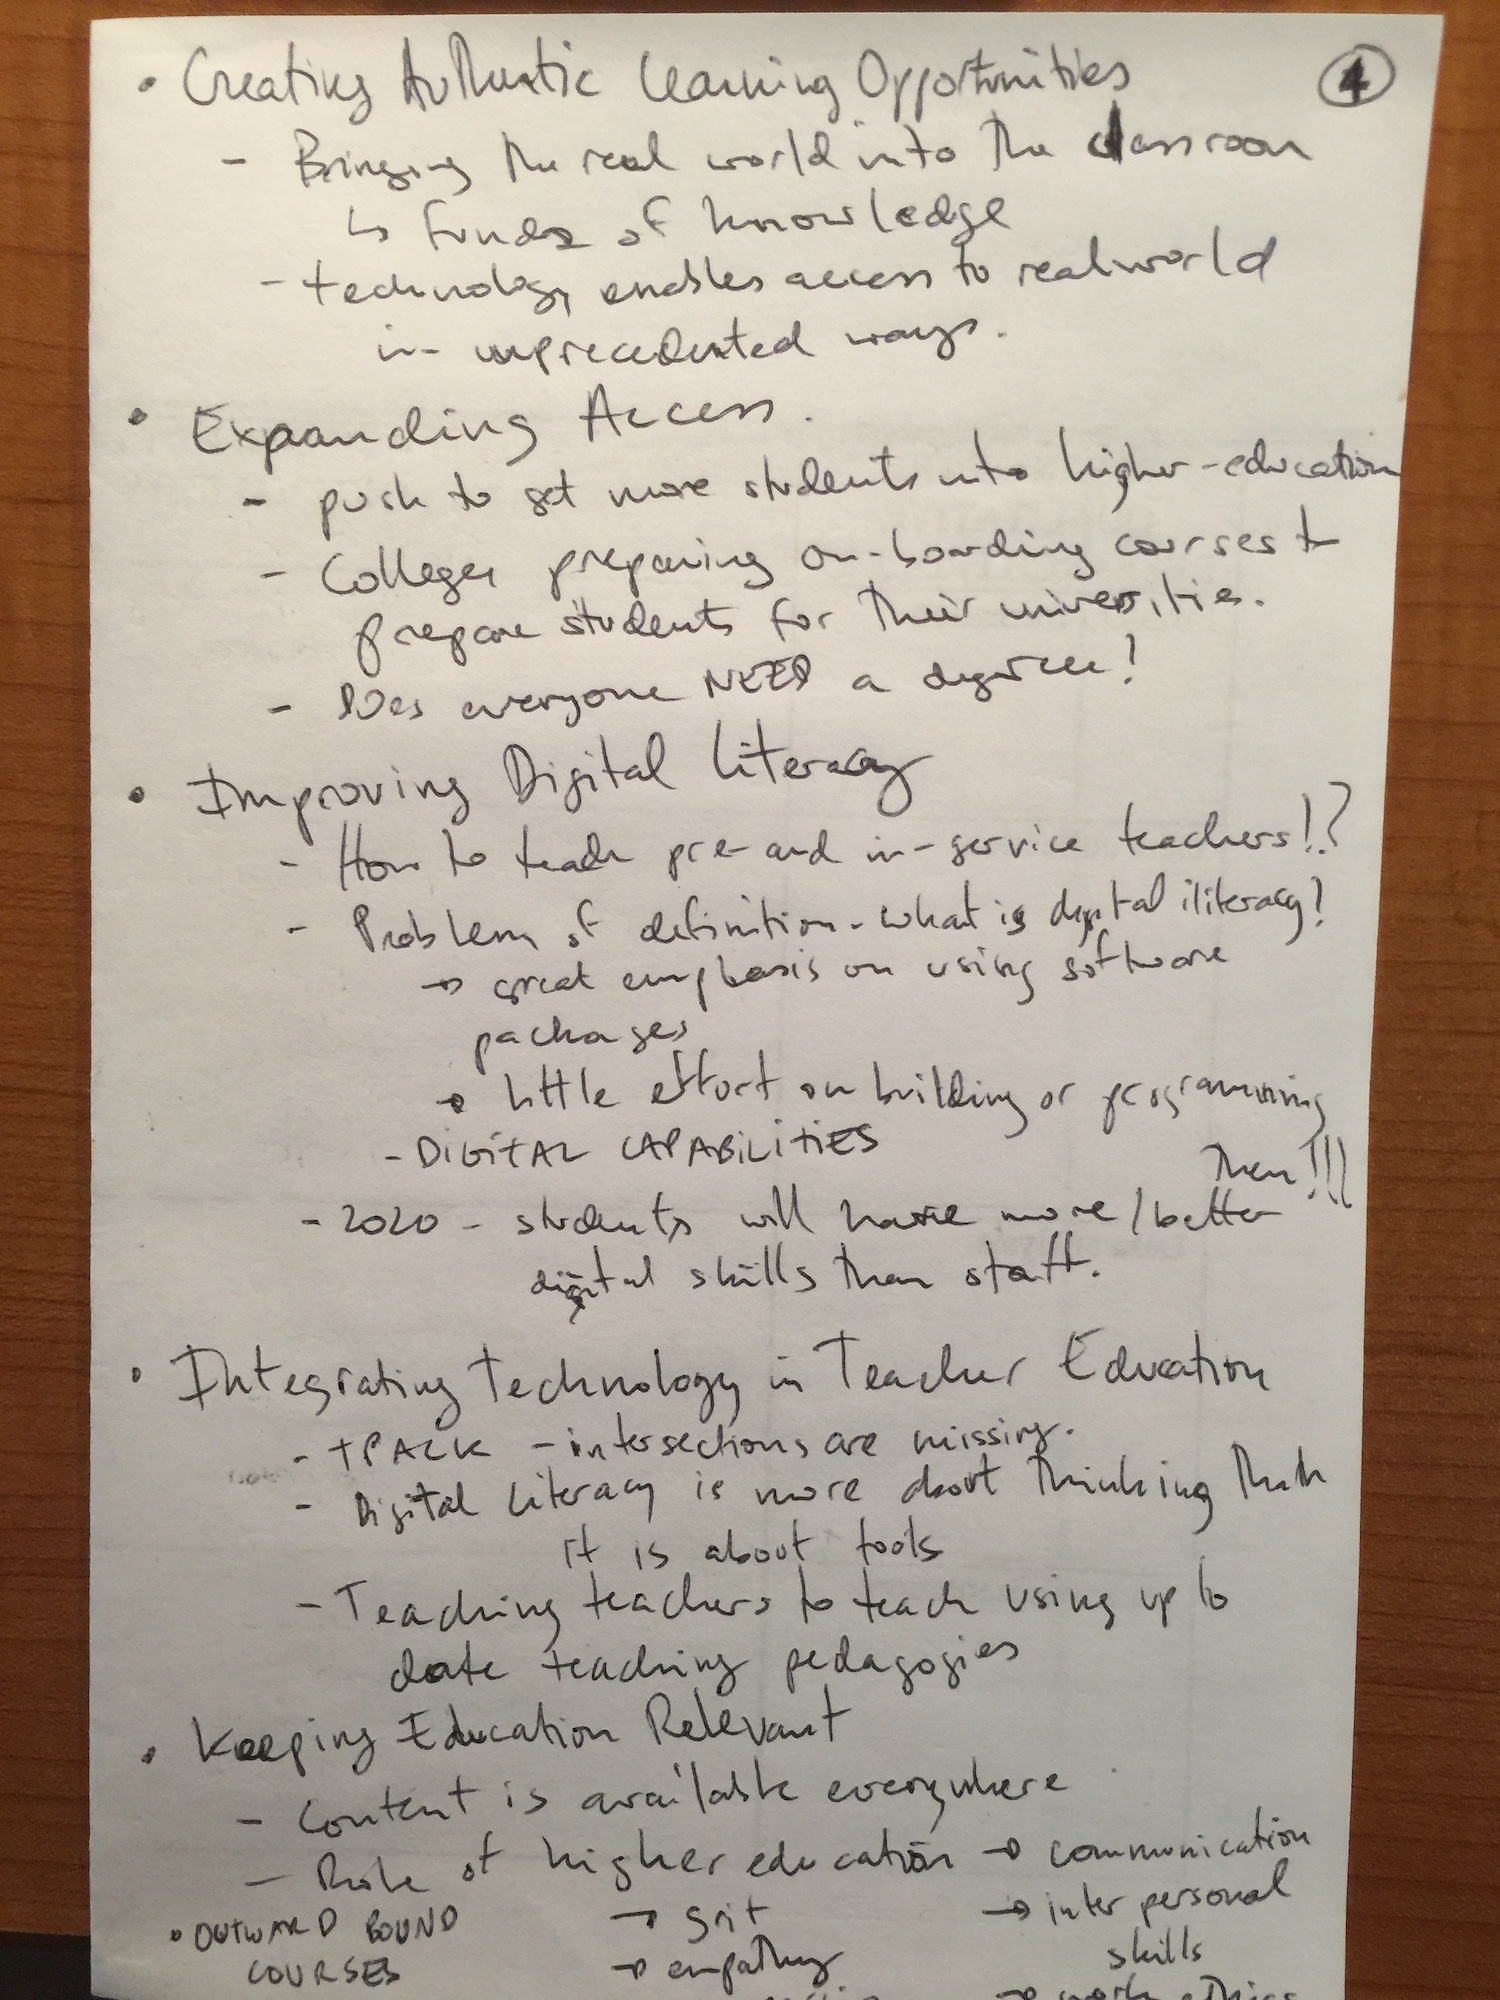 • Creating Authentic Learning Opportunities ④
- Bringing the real world into the classroom
↳ funds of knowledge
- technology enables access to real world
in unprecedented ways.
• Expanding Access.
- push to get more students into higher-education
- Colleges preparing on-boarding courses to
prepare students for their universities.
- Does everyone NEED a degree!
• Improving Digital Literacy
- How to teach pre- and in-service teachers!?
- Problem of definition - what is digital iliteracy?
→ great emphasis on using software
packages
→ little effort on building or programming
them!!!
- DIGITAL CAPABILITIES
- 2020 - students will have more/better
digital skills than staff.
• Integrating technology in Teacher Education
- TPACK - intersections are missing.
- Digital literacy is more about thinking than
it is about tools
- Teaching teachers to teach using up to
date teaching pedagogies
• Keeping Education Relevant
- Content is available everywhere
- Role of higher education → communication
• OUTWARD BOUND → grit → inter personal
COURSES → empathy skills
→ work ethics